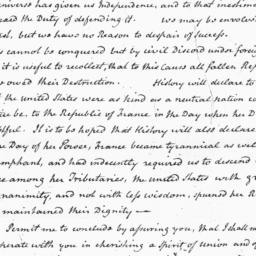 univers has given us Independence, and to that inestim
the Duty of defending it. we may be envolv
but we have no Reason to despair of success.
cannot be conquered but by civil Discord under fore
it is useful to recollect, that to this Cause all fallen Rep
owed their Destruction. History will declare to
the united States were as kind as a neutral nation c
be, to the Republic of France in the Day when her D
It is to be hoped that History will also declare
Day of her Power, France became tyrannical as well
and had indecently required us to descend
among her Tributaries, the united States with g
and not with less wisdom, spurned her R
maintained their Dignity —
Permit me to conclude by assuring you, that I shall
with you in cherishing a Spirit of union and o